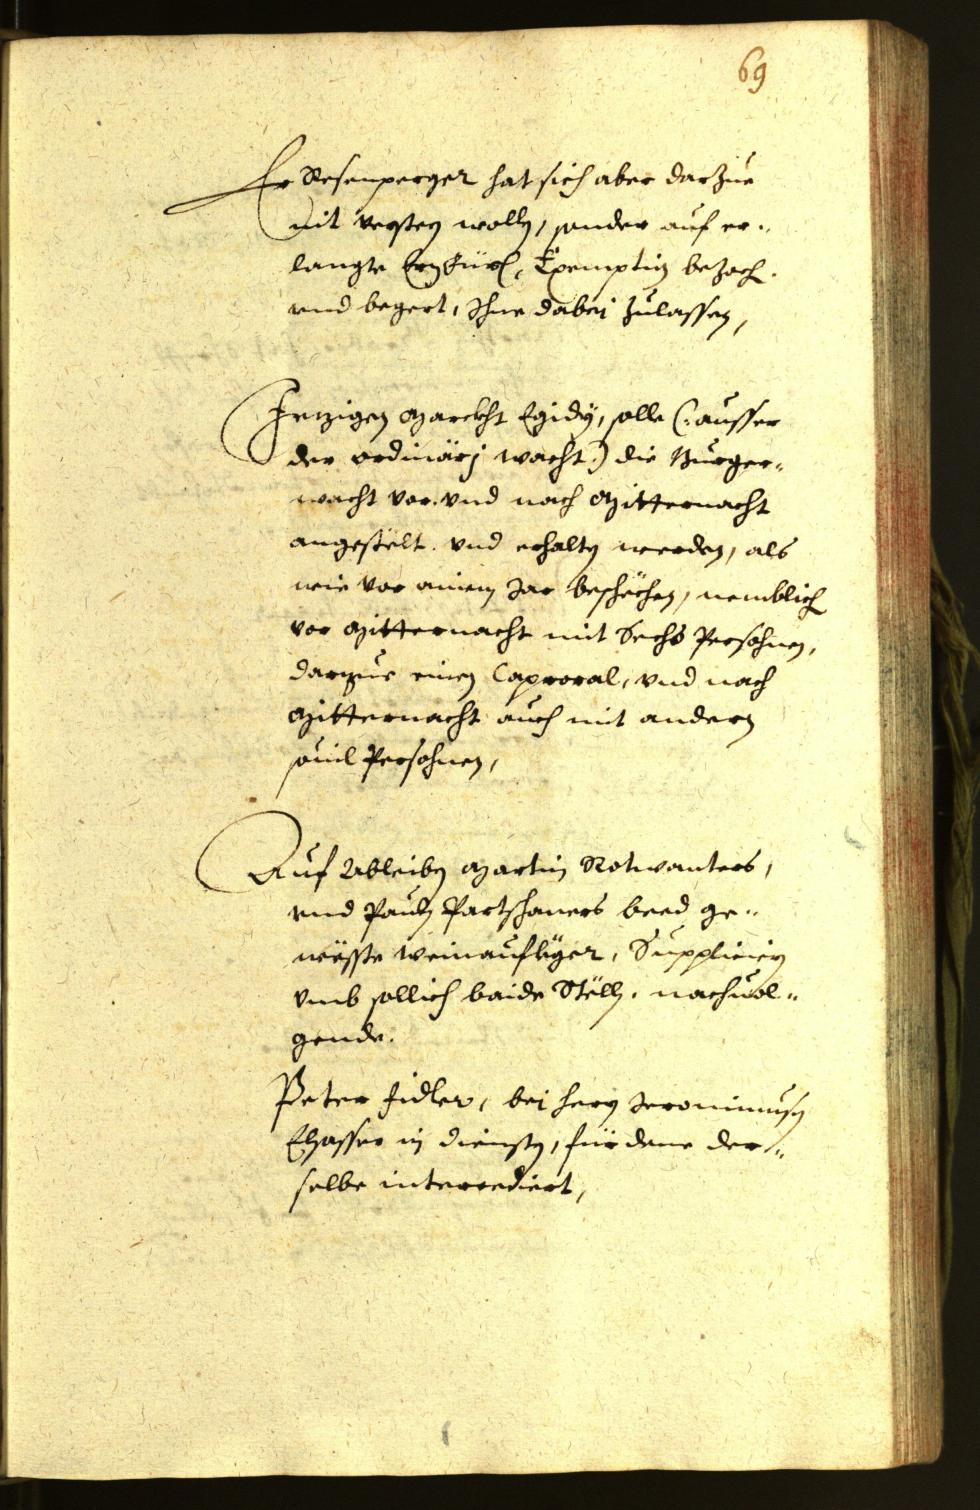 69
Er Resenperger hat sich aber darzue
nit versten wolln, sonder auf er-
langte Ertzfürl. Exemption bezoch.
vnd begert, Ihne dabei zulassen,
Jetzigen Marckht Egidÿ, solle (: ausser
der ordinärj wacht :) die Burger-
wacht vor. vnd nach Mitternacht
angestelt. vnd erhalten werden, als
wie vor ainem Jar beschechen, nemblich
vor Mitternacht mit Sechs Persohnen,
darzue einen Caproral, vnd nach
Mitternacht auch mit andern
souil Persohnen,
Auf Ableiben Martin Rotwanters,
vnd Pauln Partschaners beed ge-
weßte weinaufleger, Suppliciern
vmb sollich baide Stölln, nachuol-
gende.
Peter Fidler, bei herrn Jeronimusen
Elsasser in diensten, für dene der-
selbe intercediert,